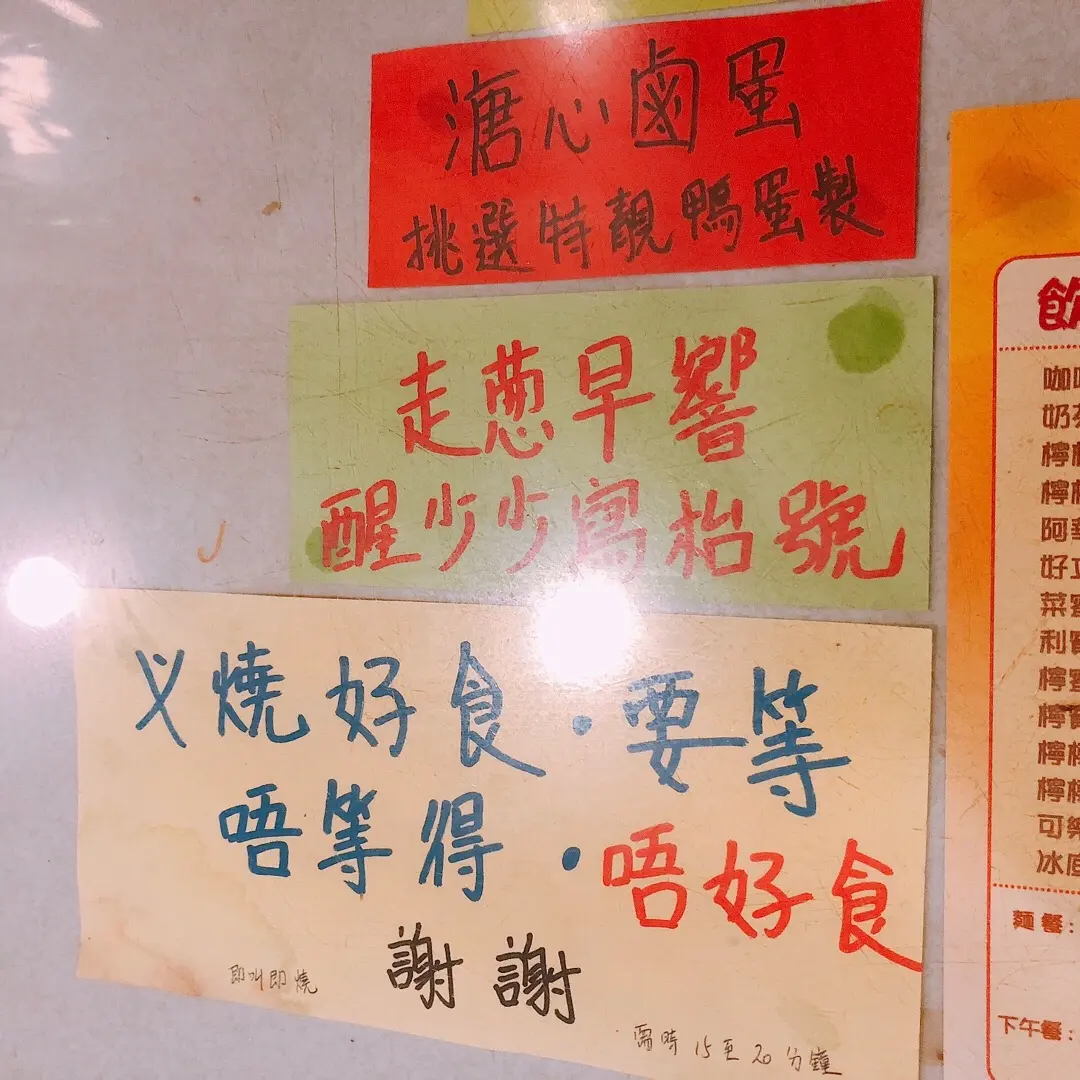 溏心鹵蛋
挑選特靚鴨蛋製
走蔥早響
醒少少寫枱號
义燒好食·要等
唔等得·唔好食
謝謝
即叫即燒
需時15至20分鐘
飲
咖
奶茶
檸
檸
阿華
好立
菜蜜
利賓
檸蜜
檸
檸
檸
可樂
冰
麵餐:
下午餐: